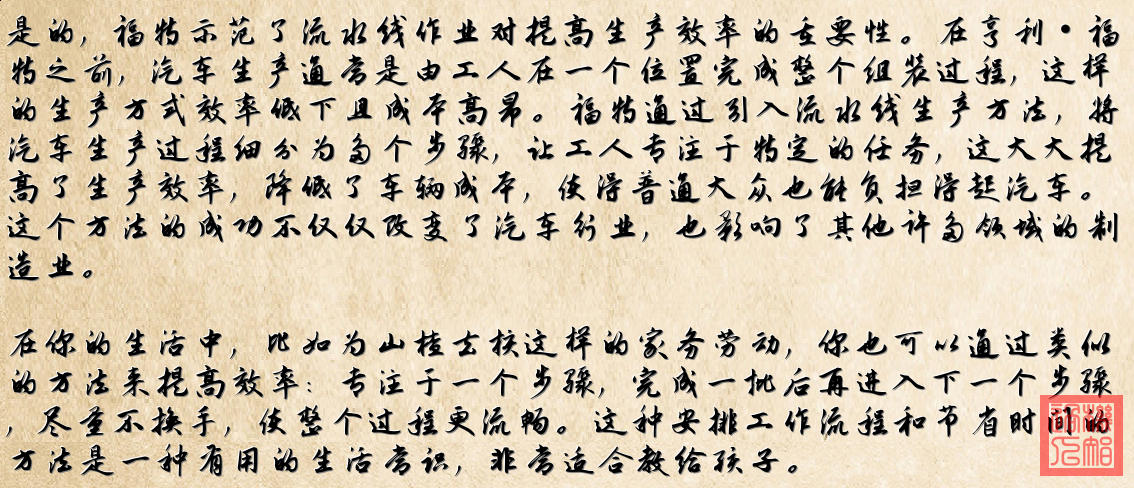 是的，福特示范了流水线作业对提高生产效率的重要性。在亨利·福
特之前，汽车生产通常是由工人在一个位置完成整个组装过程，这样
的生产方式效率低下且成本高昂。福特通过引入流水线生产方法，将
汽车生产过程细分为多个步骤，让工人专注于特定的任务，这大大提
高了生产效率，降低了车辆成本，使得普通大众也能负担得起汽车。
这个方法的成功不仅仅改变了汽车行业，也影响了其他许多领域的制
造业。
在你的生活中，比如为山楂去核这样的家务劳动，你也可以通过类似
的方法来提高效率：专注于一个步骤，完成一批后再进入下一个步骤
，尽量不换手，使整个过程更流畅。这种安排工作流程和节省时间的
方法是一种有用的生活常识，非常适合教给孩子。